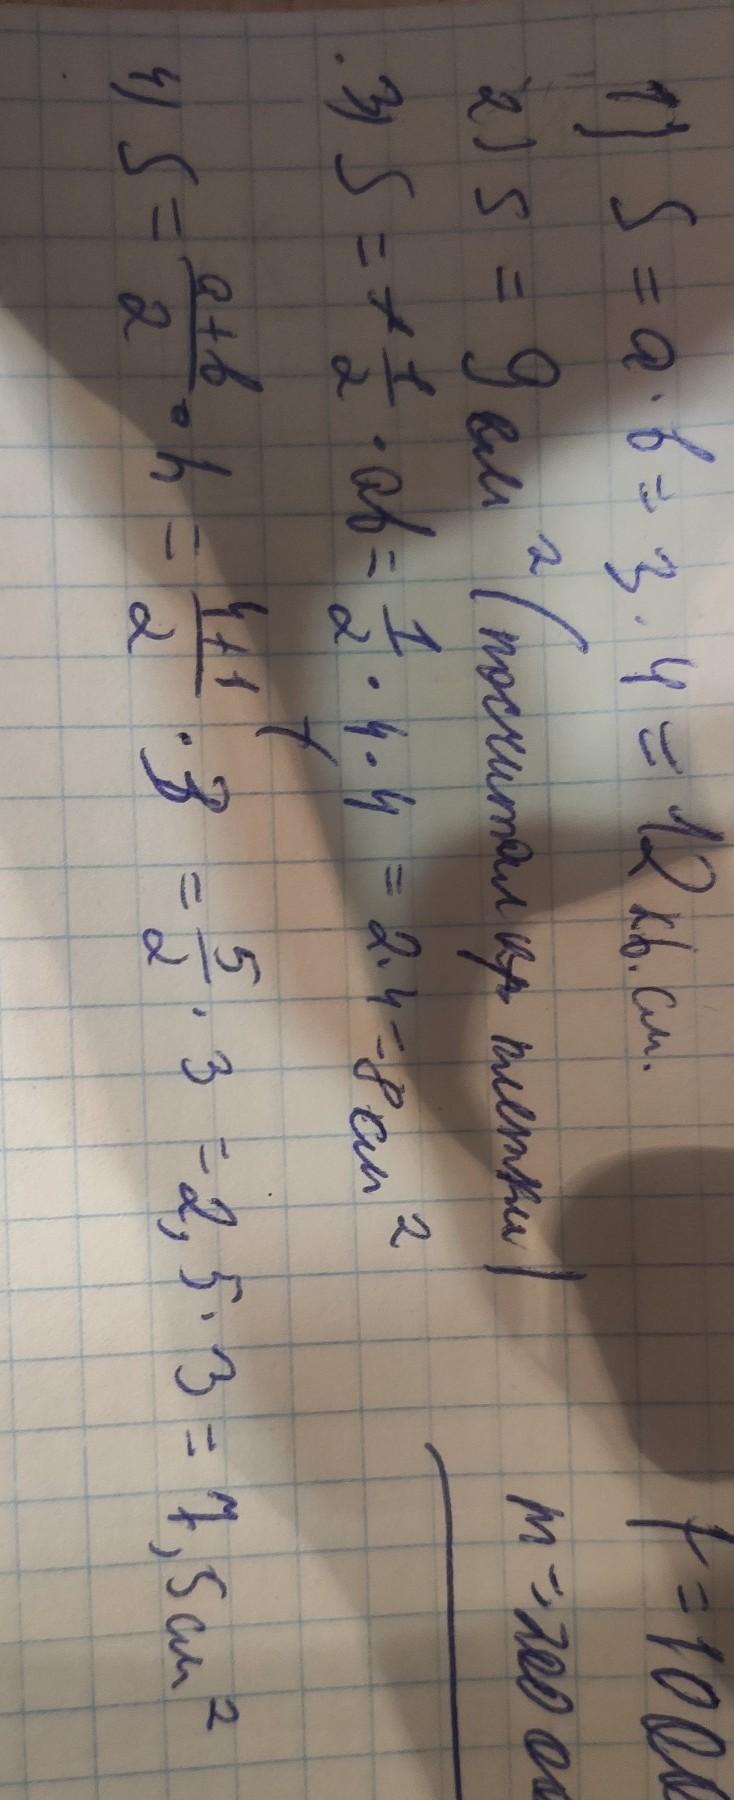 1) S = a · b = 3 · 4 = 12 кв. см.
2) S = 9 см² (посчитал клетки)
3) S = 1/2 · ab = 1/2 · 4 · 4 = 2 · 4 = 8 см²
4) S = (a+b)/2 · h = (4+1)/2 · 3 = 5/2 · 3 = 2,5 · 3 = 7,5 см²
m = 200